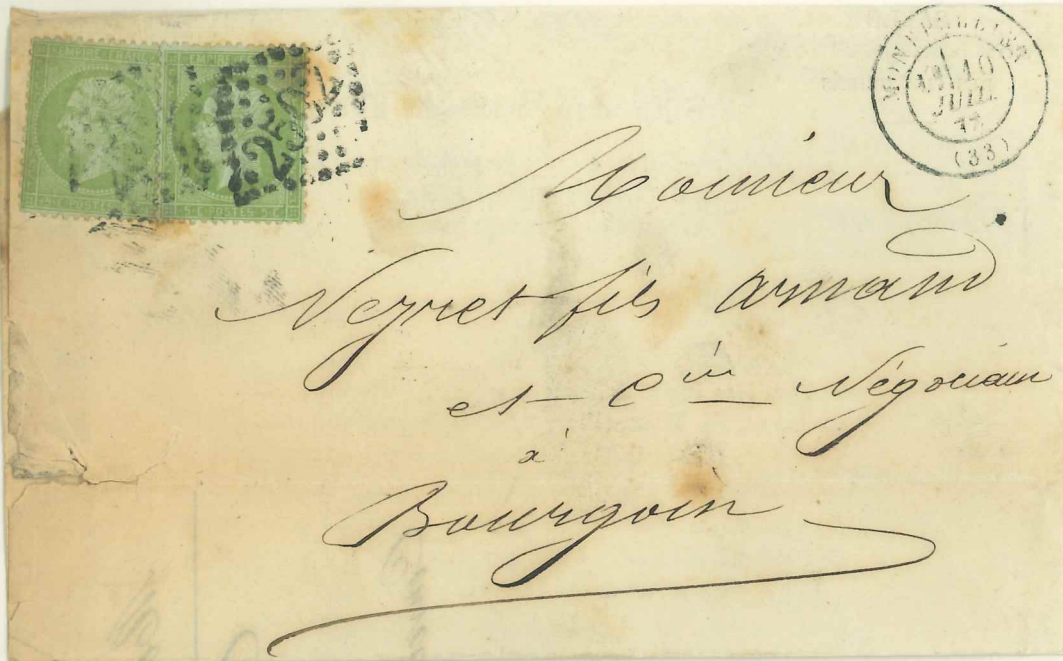 MONTPELLIER
10
JUIL.
(33)
POSTES 5 C
Monsieur
Neyret fils Armand
et Cie Négociant
à
Bourgoin